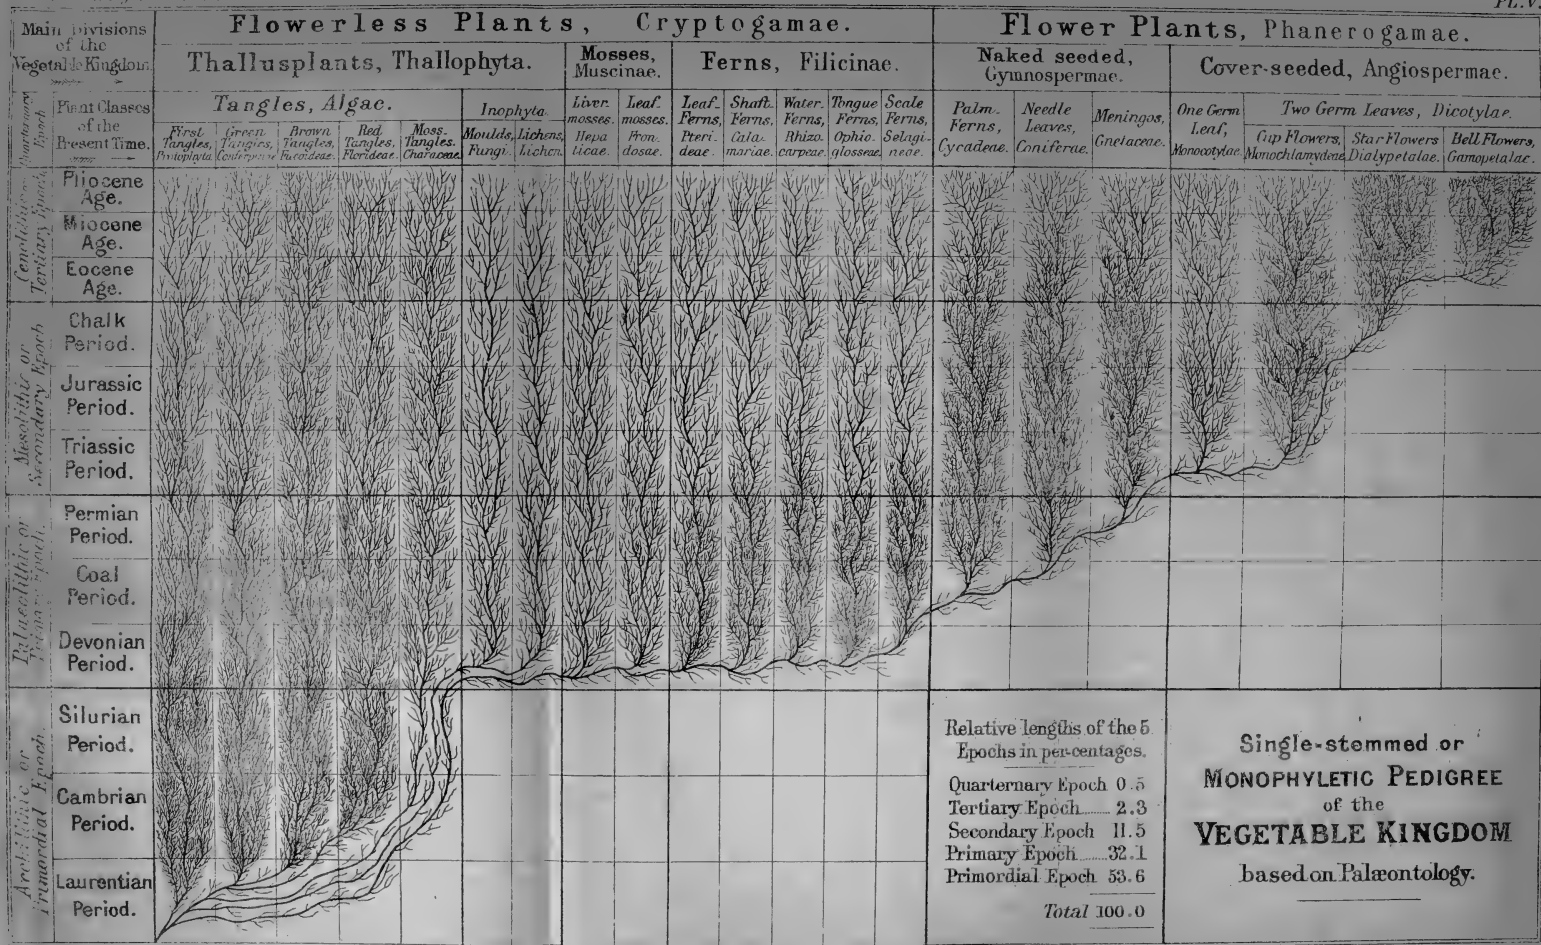 PL.V.
Main Divisions
of the
Vegetable Kingdom.
Flowerless Plants, Cryptogamae.
Flower Plants, Phanerogamae.
Thallusplants, Thallophyta.
Mosses,
Muscinae.
Ferns, Filicinae.
Naked seeded,
Gymnospermae.
Cover-seeded, Angiospermae.
Plant Classes
of the
Present Time.
Tangles, Algae.
Inophyta.
First
Tangles,
Protophyta
Green
Tangles,
Brown
Tangles,
Fucoideae.
Red
Tangles,
Florideae.
Moss-
Tangles.
Characeae.
Moulds,
Fungi.
Lichens,
Lichen.
Liver-
mosses.
Hepa
ticae.
Leaf-
mosses.
Fron
dosae.
Leaf-
Ferns,
Pteri-
deae.
Shaft-
Ferns,
Cala-
mariae.
Water-
Ferns,
Rhizo-
carpeae.
Tongue
Ferns,
Ophio-
glosseae.
Scale
Ferns,
Selagi-
neae.
Palm-
Ferns,
Cycadeae.
Needle
Leaves,
Coniferae.
Meningos,
Gnetaceae.
One Germ
Leaf,
Monocotylae.
Two Germ Leaves, Dicotylae.
Cup Flowers,
Monochlamydeae
Star Flowers
Dialypetalae.
Bell Flowers,
Gamopetalae.
Tertiary Epoch
Pliocene
Age.
Miocene
Age.
Eocene
Age.
Mesolithic or
Secondary Epoch
Chalk
Period.
Jurassic
Period.
Triassic
Period.
Palaeolithic or
Primary Epoch.
Permian
Period.
Coal
Period.
Devonian
Period.
Primordial Epoch.
Silurian
Period.
Cambrian
Period.
Laurentian
Period.
Relative lengths of the 5
Epochs in per-centages.
Quarternary Epoch 0.5
Tertiary Epoch...... 2.3
Secondary Epoch 11.5
Primary Epoch.....32.1
Primordial Epoch 53.6
Total 100.0
Single-stemmed or
MONOPHYLETIC PEDIGREE
of the
VEGETABLE KINGDOM
based on Palæontology.